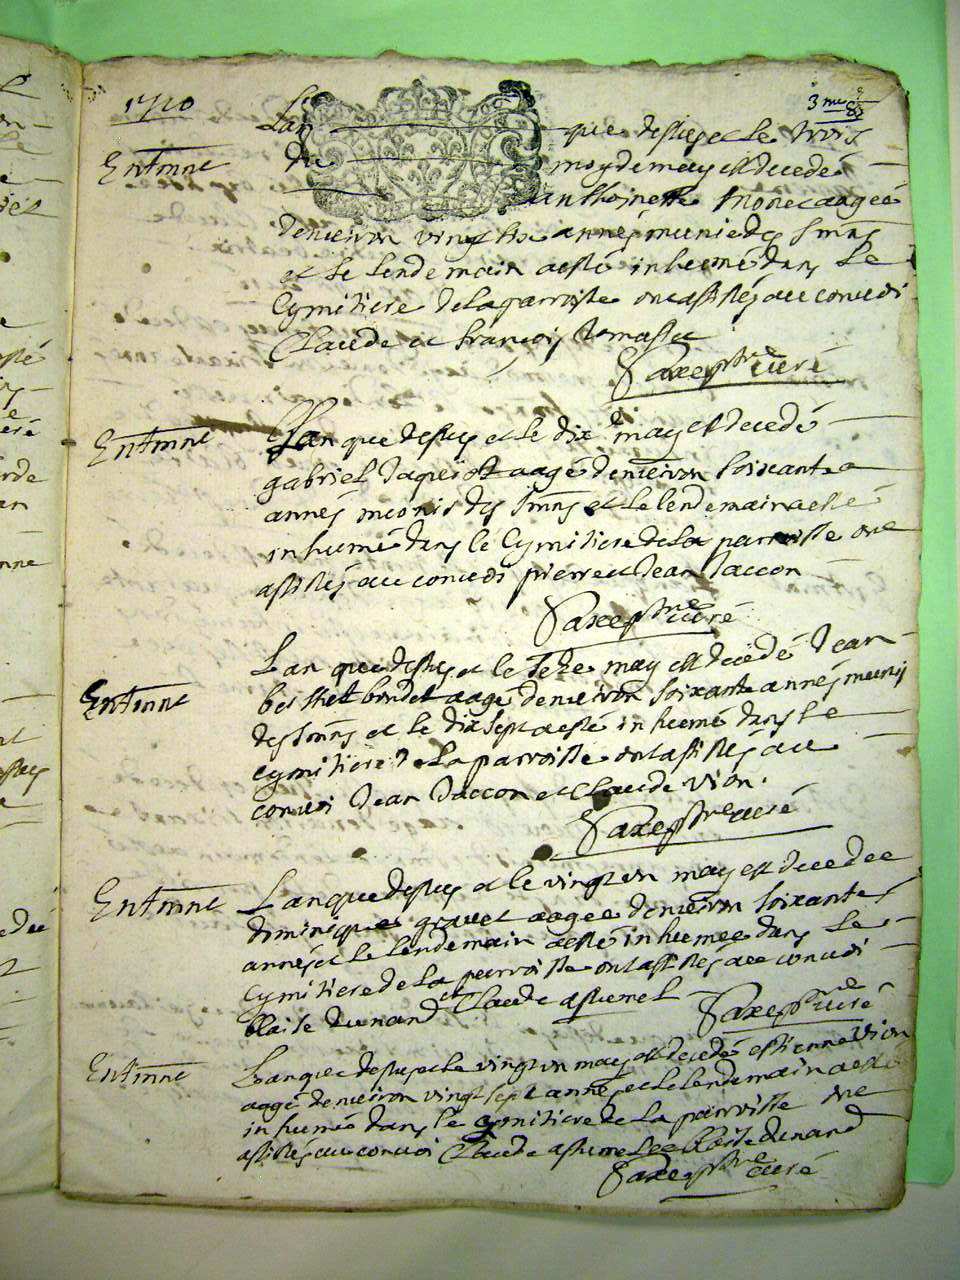 1710
L'an que dessus et le trois
Enterrmt du moy de may est decedé
anthoinette monet aagée
denviron vingt six années munie des smns
et le lendemain a esté inhumé dans le
Cymitiere de la parroisse ont assistés au convoi
Claude et françois
Saxe ptre curé
Enterrmt Lan que dessus et le dix may est decedé
gabriel Jaqueiot aagé denviron soixante
années meunis des smns et le lendemain a esté
inhumé dans le Cymitiere de la parroisse ont
assistés au convoi pierre et Jean Jaccon
Saxe ptre curé
Enterrmt Lan que dessus et le seize may est decedé Jean
bondet aagé denviron soixante années meunis
des smns et le dix sept a esté inhumé dans le
cymitiere de la parroisse ont assistés au
convoi Jean Jaccon et Claude vion
Saxe ptre curé
Enterrmt Lan que dessus et le vingt un may est decedee
dominique gravet aagee denviron soixante
années et le lendemain a esté inhumee dans le
Cymitiere de la parroisse ont assistés au convoi
blaise dunand et Claude
Saxe ptre curé
Enterrmt Lan que dessus et le vingt un may est decedé estienne vion
aagé denviron vingt sept années et le lendemain a esté
inhumé dans le cymitiere de la parroisse ont
assistés au convoi Claude et blaise dunand
Saxe ptre curé